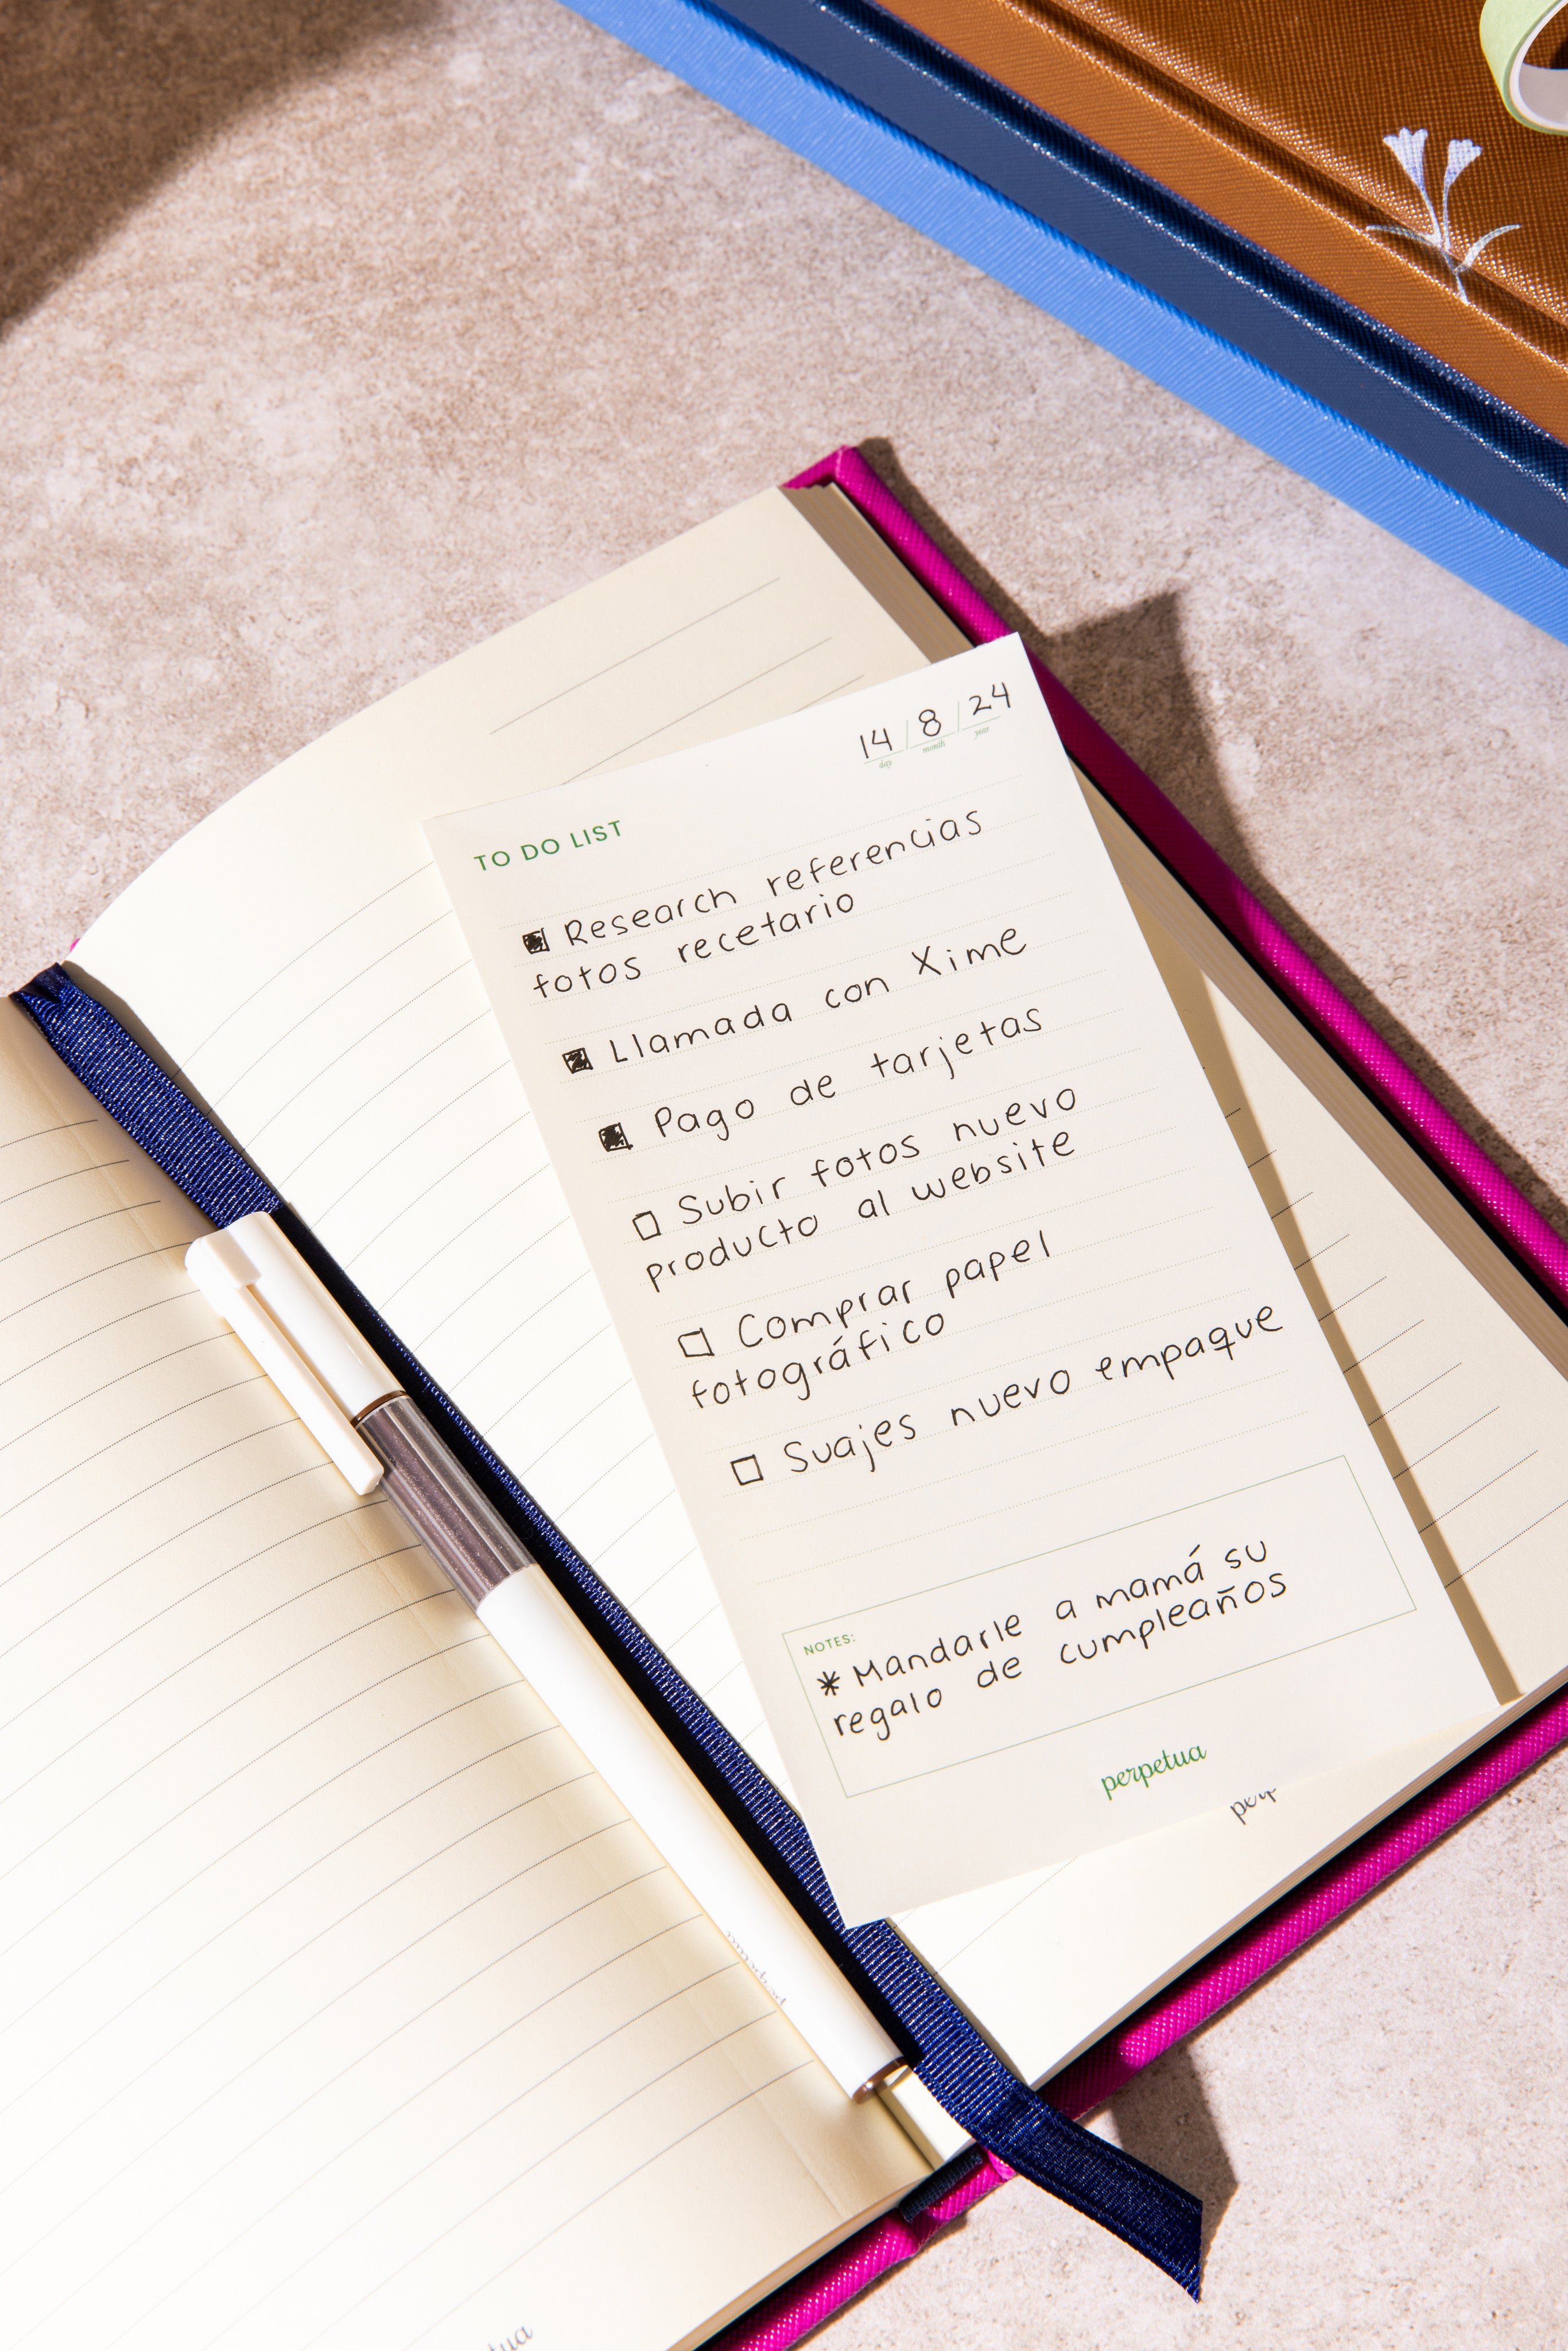 14 / 8 / 24
day month year
TO DO LIST
Research referencias
fotos recetario
Llamada con Xime
Pago de tarjetas
Subir fotos nuevo
producto al website
Comprar papel
fotográfico
Suajes nuevo empaque
NOTES:
* Mandarle a mamá su
regalo de cumpleaños
perpetua
perp
perpetua
tua